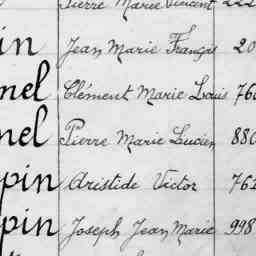 Pierre Marie Vincent 222
in Jean Marie François 20
nel Clément Marie Louis 76
nel Pierre Marie Lucien 880
pin Aristide Victor 762
pin Joseph Jean Marie 998